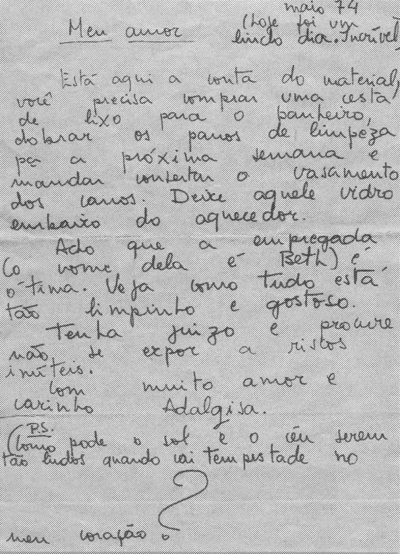 maio 74
Meu amor (Hoje foi um
lindo dia. Incrível)
Está aqui a conta do material,
você precisa comprar uma cesta
de lixo para o banheiro,
dobrar os panos de limpeza
pa a próxima semana e
mandar consertar o vasamento
dos canos. Deixe aquele vidro
embaixo do aquecedor.
Acho que a empregada
(o nome dela é Beth) é
ótima. Veja como tudo está
tão limpinho e gostoso.
Tenha juizo e procure
não se expor a riscos
inúteis.
Com muito amor e
carinho Adalgisa.
P.S.
(Como pode o sol e o céu serem
tão lindos quando cai tempestade no
meu coração?